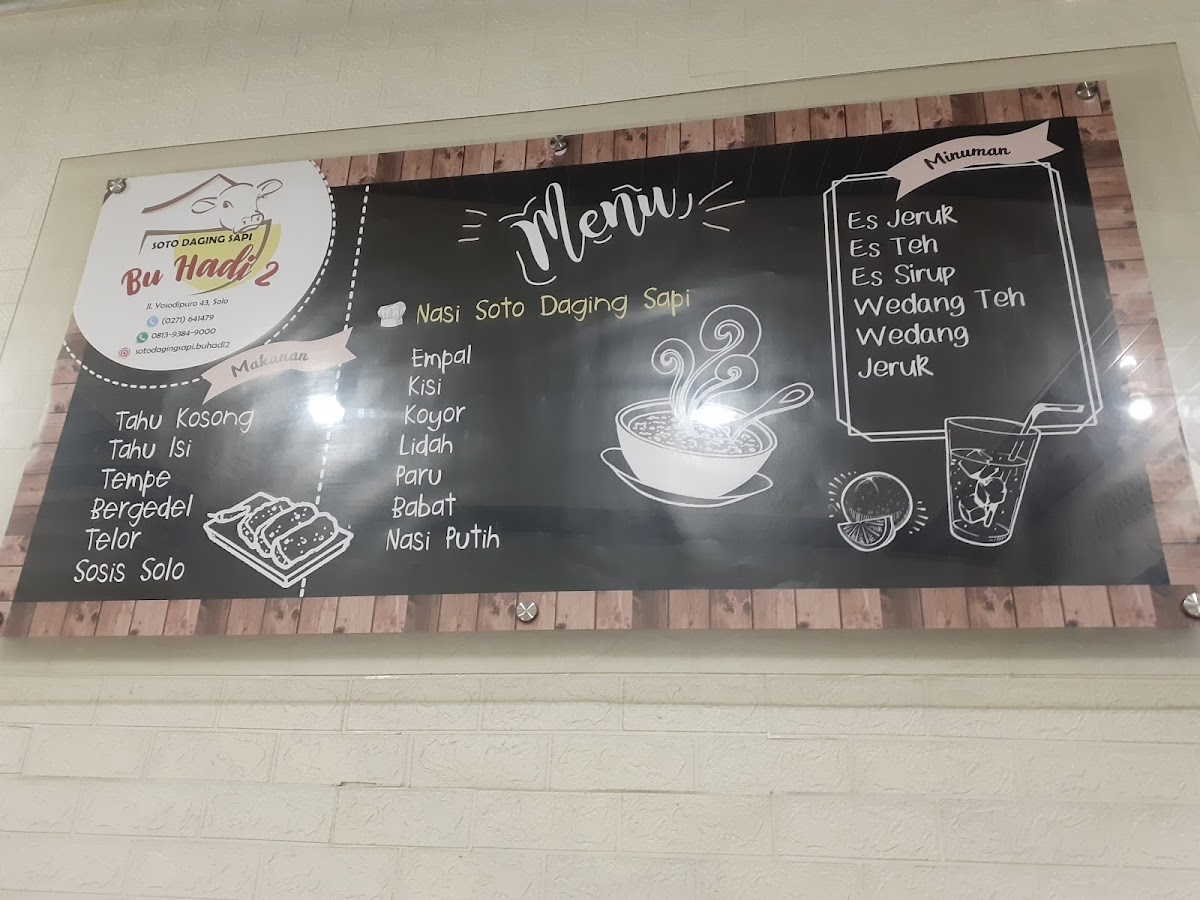 SOTO DAGING SAPI
Bu Hadi 2
Jl. Yosodipuro 43, Solo
(0271) 641479
0813-9384-9000
sotodagingsapi.buhadi2
Makanan
Tahu Kosong
Tahu Isi
Tempe
Bergedel
Telor
Sosis Solo
Menu
Nasi Soto Daging Sapi
Empal
Kisi
Koyor
Lidah
Paru
Babat
Nasi Putih
Minuman
Es Jeruk
Es Teh
Es Sirup
Wedang Teh
Wedang
Jeruk